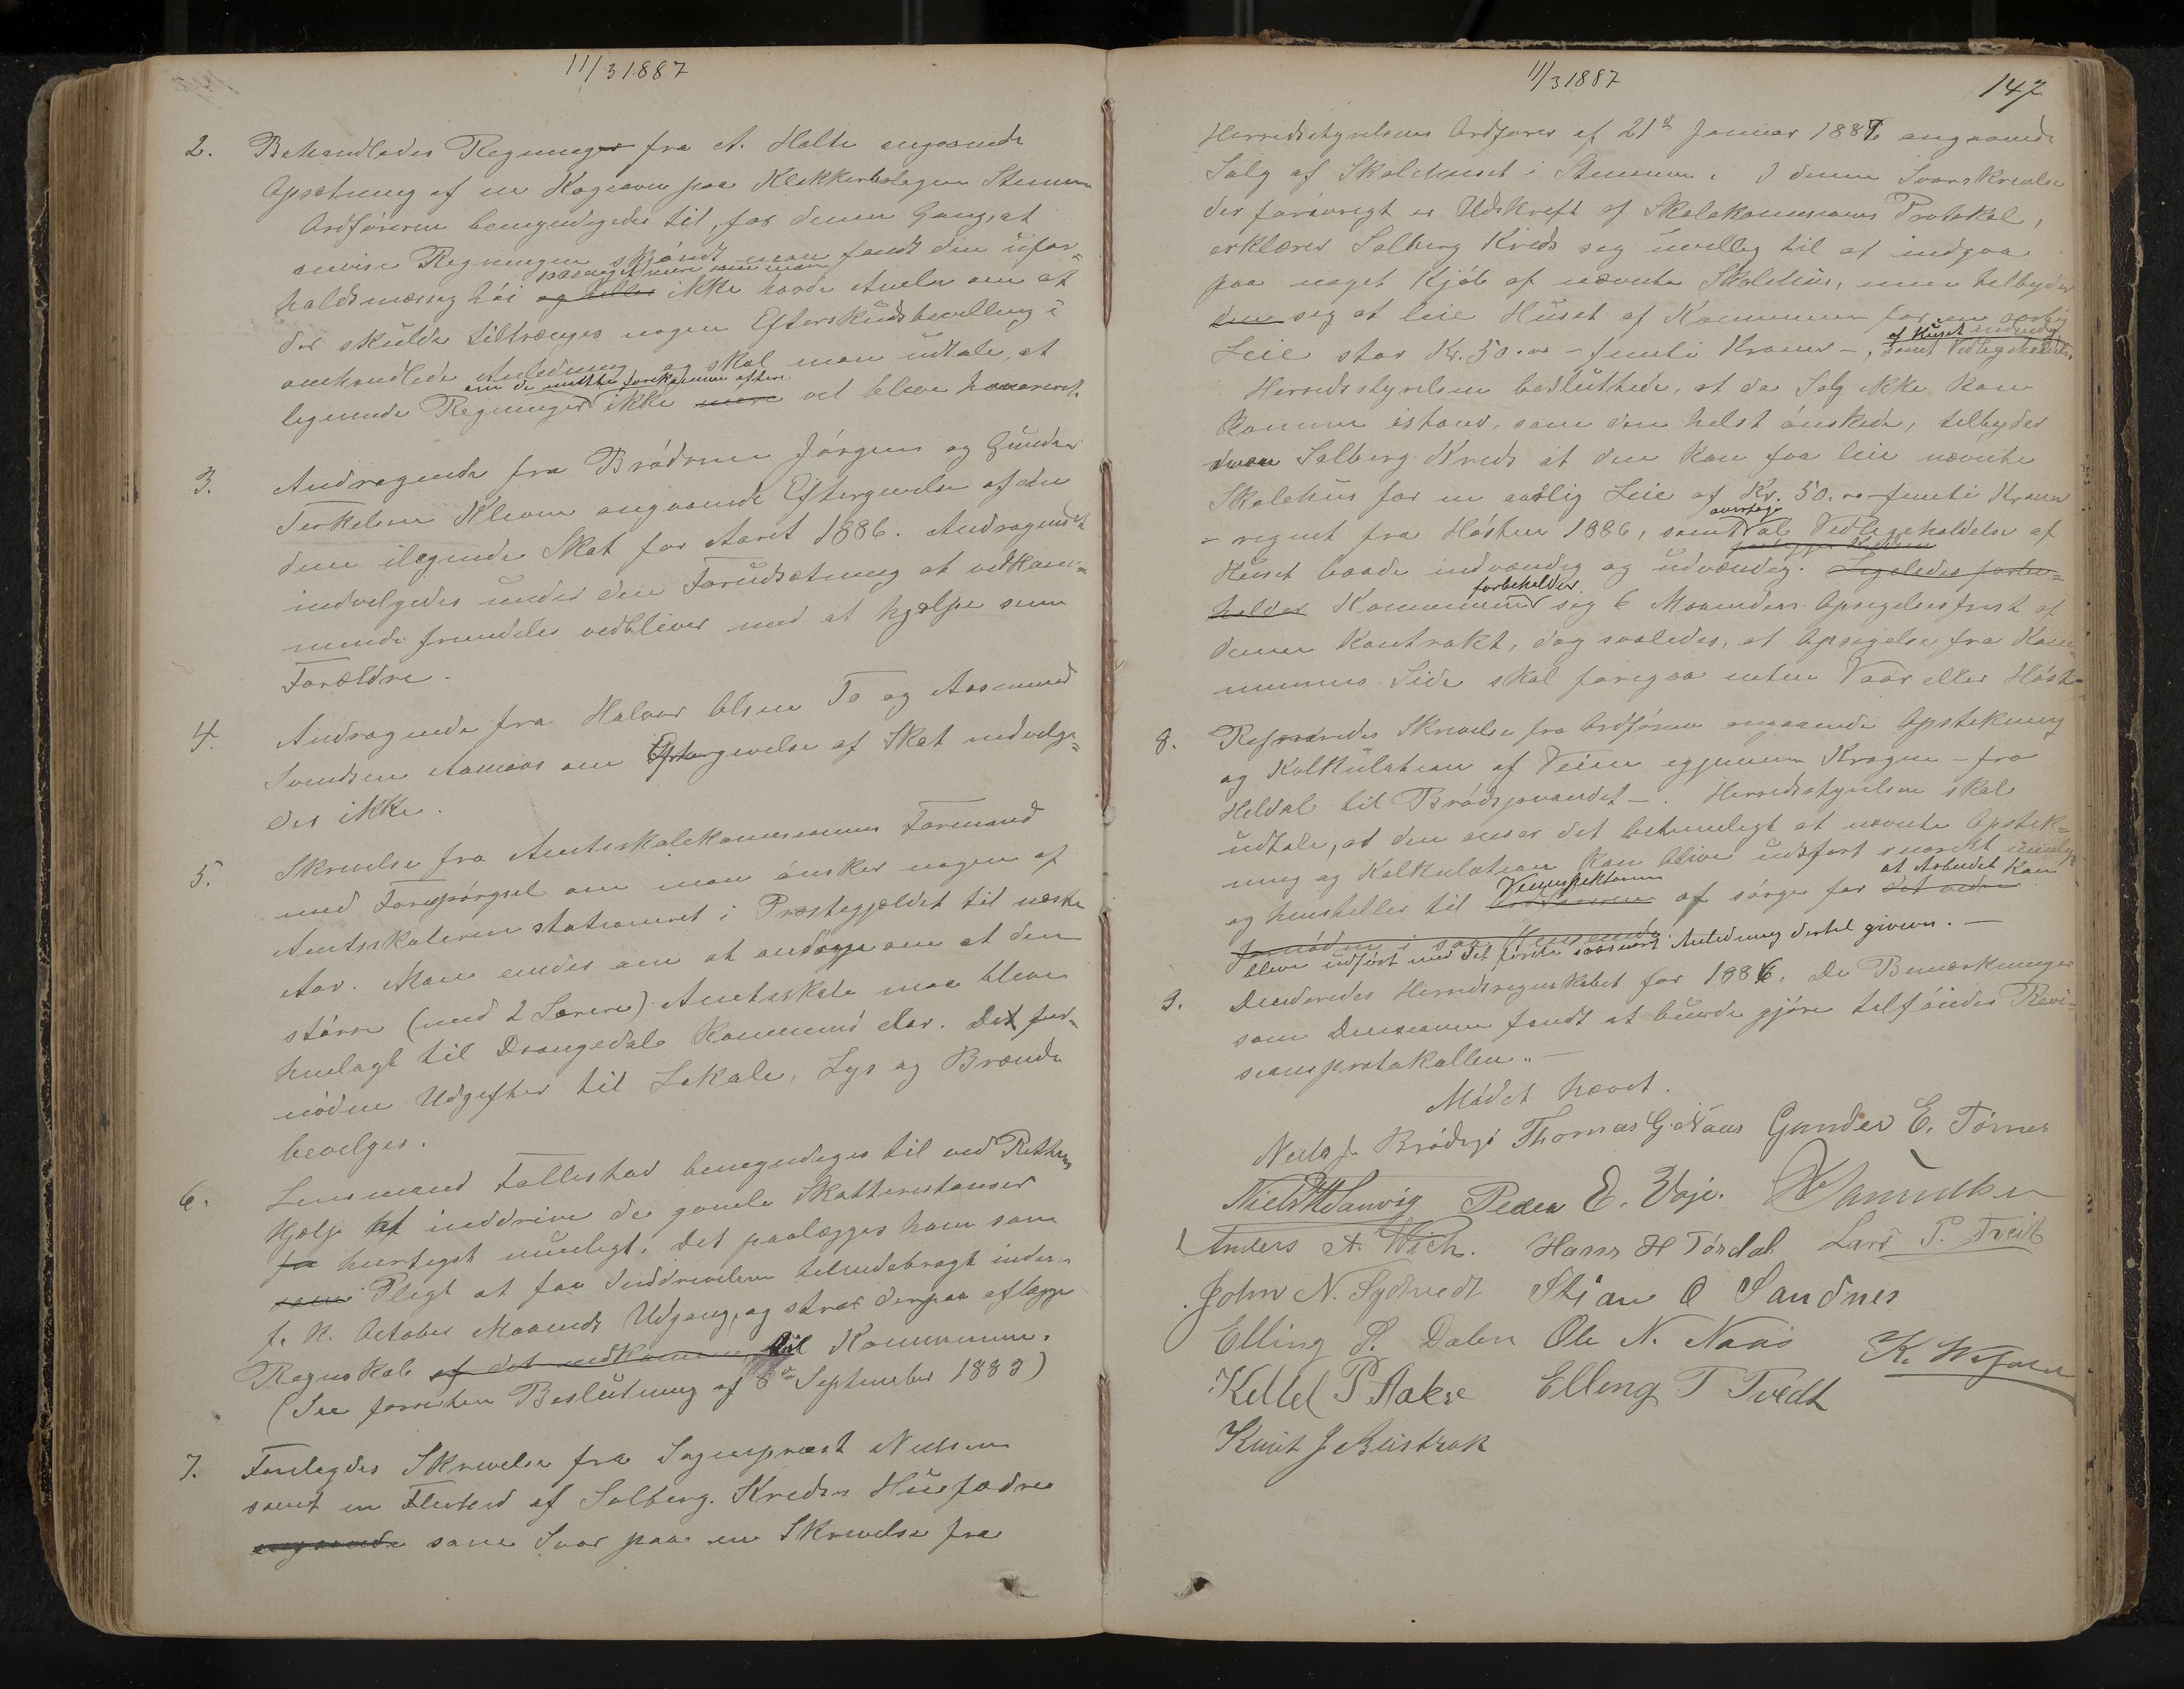 11/3 1887
2. Behandledes Regninger fra A. Holte angaaende
Opsætning af en Kogeovn paa Klokkerboligen Stemmen
Ordføreren bemyndigedes til, for denne Gang, at
anvise Regningen skjøndt man fandt den ufor-
paa noget mere som man
holdsmæssig høi og heller ikke havde Anelse om at
der skulde tiltrænges nogen Efterskudsbevilling i
omhandlede Anledning og skal man udtale, at
om de maatte forekomme oftere
lignende Regninger ikke mere vil blive honoreret.
3. Andragende fra Brødrene Jørgen og Gunder
Terkelsen Kleven angaaende Eftergivelse af den
dem ilagende Skat for Aaret 1886. Andragendet
indvilgedes under den Forudsætning at vedkom-
mende fremdeles vedbliver med at hjælpe sine
Forældre.
4. Andragende fra Halvor Olsen To og Aasmund
Svendsen Aamaas om Eftergivelse af Skat indvilge-
des ikke.
5. Skrivelse fra Amtsskolekommissionens Formand
med Forespørgsel om man ønsker nogen af
Amtsskolerne stationeret i Præstegjældet til næste
Aar. Man enedes om at andrage om at den
større (med 2 Lærere) Amtsskole maa blive
henlagt til Drangedal kommende Aar. Det for-
nødne Udgifter til Lokale, Lys og Brænde
bevilges.
6. Lensmand Tollestad bemyndiges til ved Rettens
Hjælp at inddrive de gamle Skatterestanser
paa hurtigst muligt. Det paalægges ham som
som Pligt at faa Inddrivelsen tilendebragt inden
f. K. October Maaneds Udgang, og strax derpaa aflægge
Regnskab af det indkomne til Kommunen.
(See forrethen Beslutning af 8de September 1883)
7. Forelagdes Skrivelse fra Sognepræst Nielsen
samt en Flerhed af Solberg Kredses Husfædre
angaaende som Svar paa en Skrivelse fra
11/3 1887
147
Herredsstyrelsens Ordfører af 21de Januar 1887 angaaende
Salg af Skolehuset i Stemmen. I denne Svarskrivelse
der forøvrigt er Udskrift af Skolekommissionens Protokol,
erklærer Solberg Kreds sig uvillig til at indgaa
paa noget Kjøb af nævnte Skolehus, men tilbyder
den sig at leie Huset af Kommunen for en aarlig
af Huset indvendig
Leie stor Kr. 50.00 - femti Kroner -, samt Vedligeholdelse
Herredsstyrelsen besluttede, at da Salg ikke kan
komme istand, som den helst ønskede, tilbyder
Solberg Kreds at den kan faa leie nævnte
Skolehus for en aarlig Leie af Kr. 50.00 - femti Kroner
overtage
- regnet fra Høsten 1886, samt al Vedligeholdelse af
Huset baade indvændig og udvændig. Ligeledes forbe-
forbeholder
holder Kommunen sig 6 Maaneders Opsigelsesfrist af
denne Kontrakt, dog saaledes, at Opsigelse fra Kom-
munens Side skal foregaa enten Vaar eller Høst.
8. Refereredes Skrivelse fra Ordføreren angaaende Opstikning
og Kalkulation af Veien egjennem Kragen - fra
Heldal til Brødsjøvandet -. Herredsstyrelsen skal
udtale, at den anser det betimeligt at nævnte Opstik-
ning og Kalkulation kan blive udført snarest muligt
Veiinspektøren at Arbeidet kan
og henstiller til Ordføreren at sørge for det videre
fornødne i saa Henseende
blive udført med det første saasnart Anledning dertil gives. -
9. Decideredes Herredsregnskabet for 1886. De Bemærkninger
som Decisionen fandt at burde gjøre tilføiedes Revi-
sionsprotokollen. -
Mødet hævet.
Niels J. Brødsjø Thomas G. Naas Gunder E. Tørnes
Niels H. Sanvig Peder E. Voje.
Anders A. Wich. Hans H Tørdal Lars P. Tveit
John N. Sydtvedt Stian O Sandnes
Elling P. Dalen Ole N. Naas
Kettel P. Aakre Elling T Tvedt
Knut J Bustrak